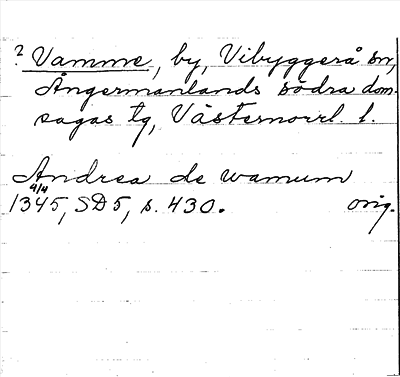 ? Vamme, by, Vibyggerå sn,
Ångermanlands södra dom-
sagas tg, Västernorrl. l.
Andrea de wamum
4/4
1345, SD5, s. 430. orig.